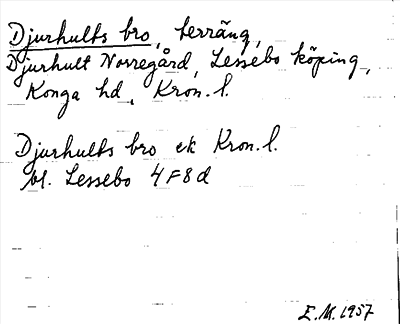 Djurhults bro, terräng,
Djurhult Norregård, Lessebo köping,
Konga hd, Kron. l.
Djurhults bro ek Kron. l.
bl. Lessebo 4F8d
E.M. 1957